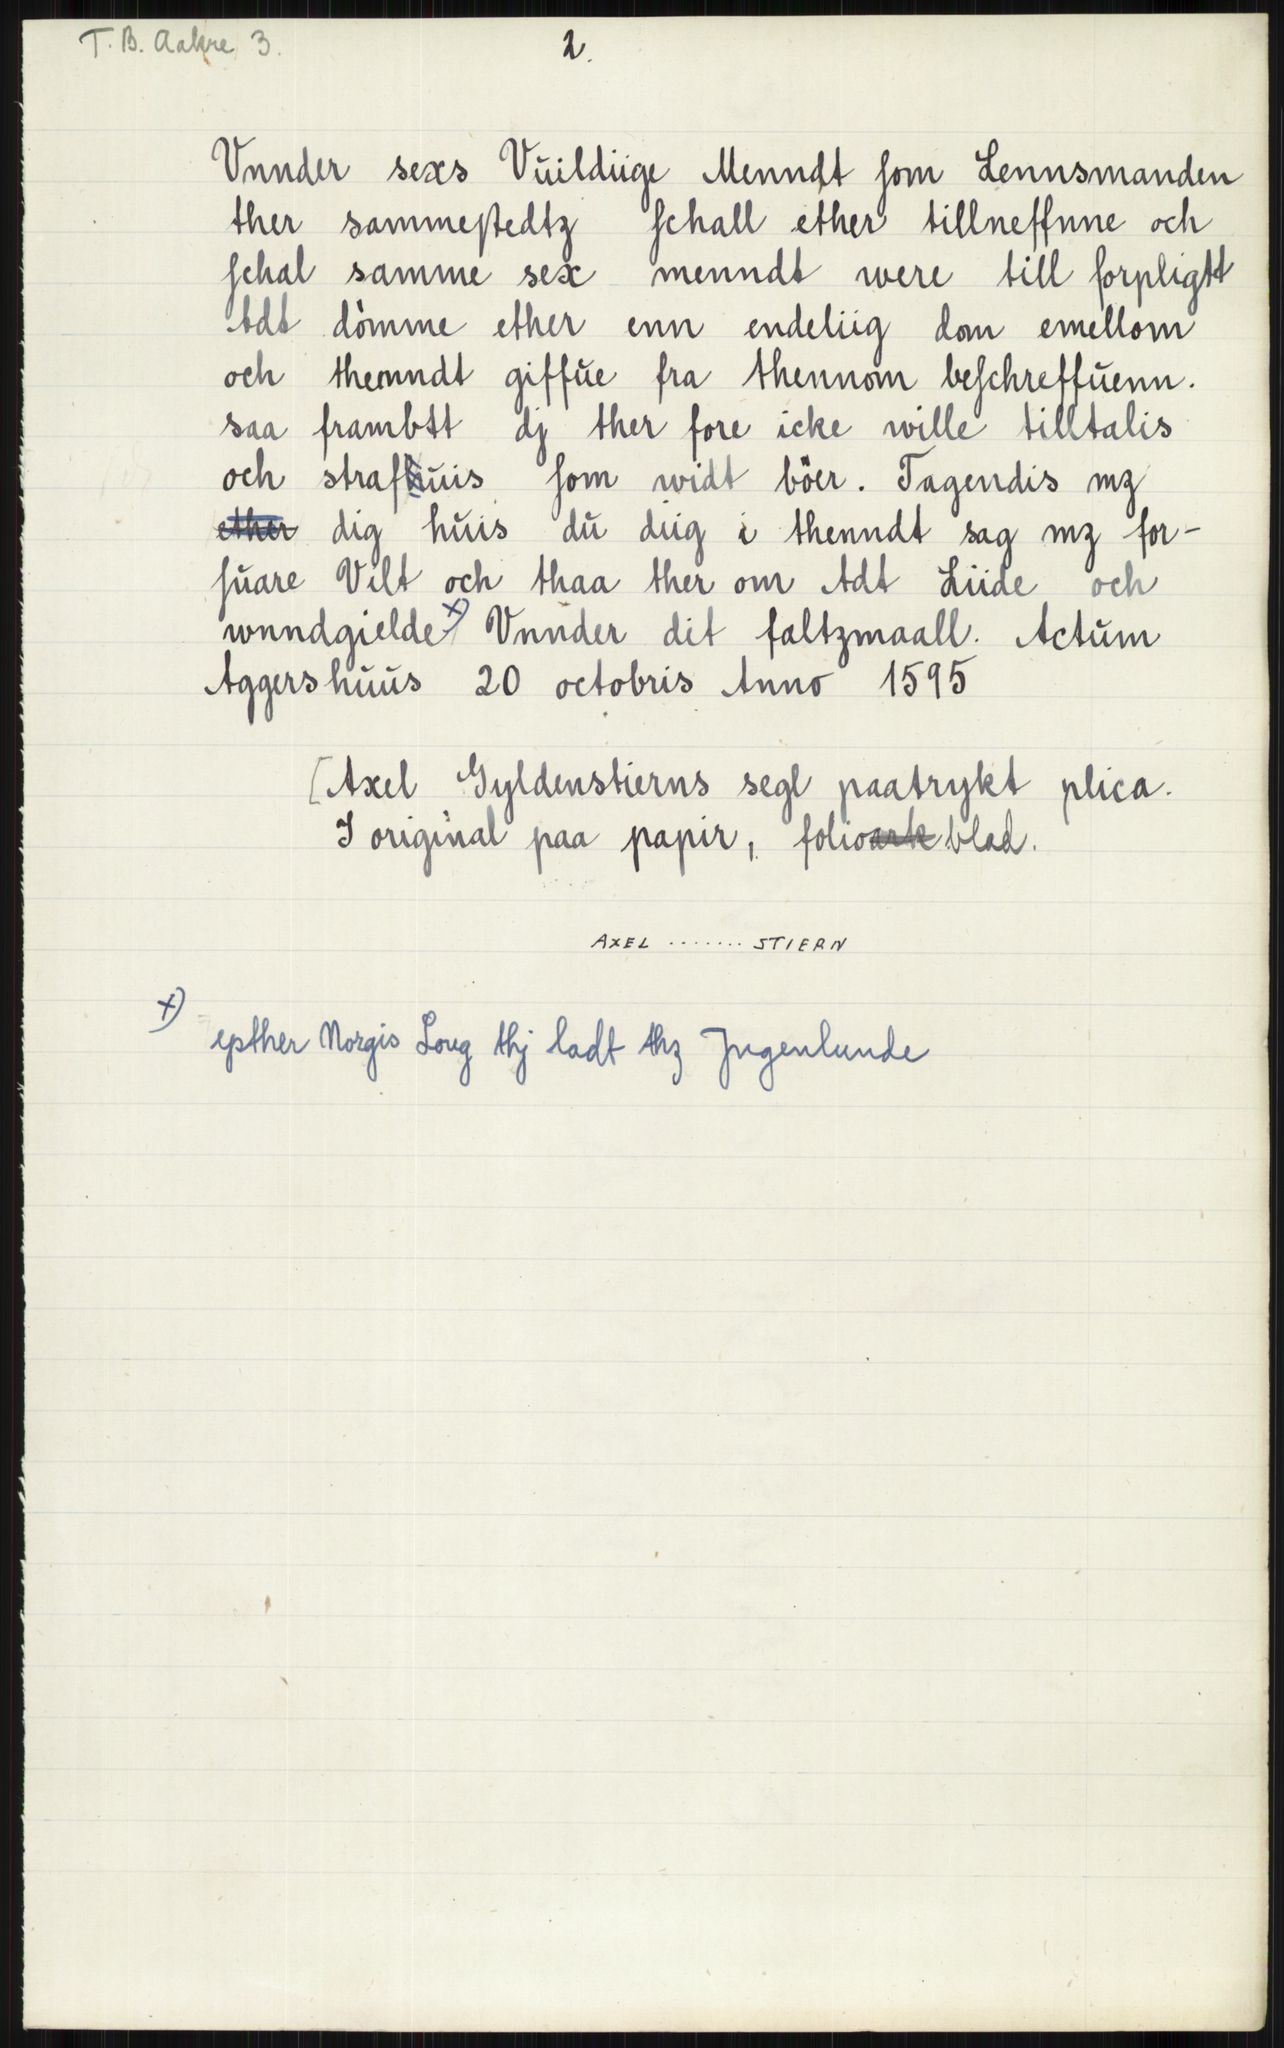 T. B. Aakre 3.
2.
Vnnder sexs Vuildiige Menndt som Lennsmanden
ther sammestedtz schall ether tillneffnne och
schal samme sex menndt were till forpligtt
Adt dömme ether enn endeliig dom emellom
och thenndt giffue fra thennom beschreffuenn.
saa frambtt dj ther fore icke wille tilltalis
och straffuis som widt böer. Tagendis mz
ether dig huis du diig i thenndt sag mz for-
suare Vilt och thaa ther om Adt Liide och
wnndgielde x) Vnnder dit faltzmaall. Actum
Aggershuus 20 octobris Anno 1595
[Axel Gyldenstierns segl paatrykt plica.
I original paa papir, folioark blad.
AXEL ....... STIERN
x) epther Norgis Loug thj ladt thz Jngenlunde